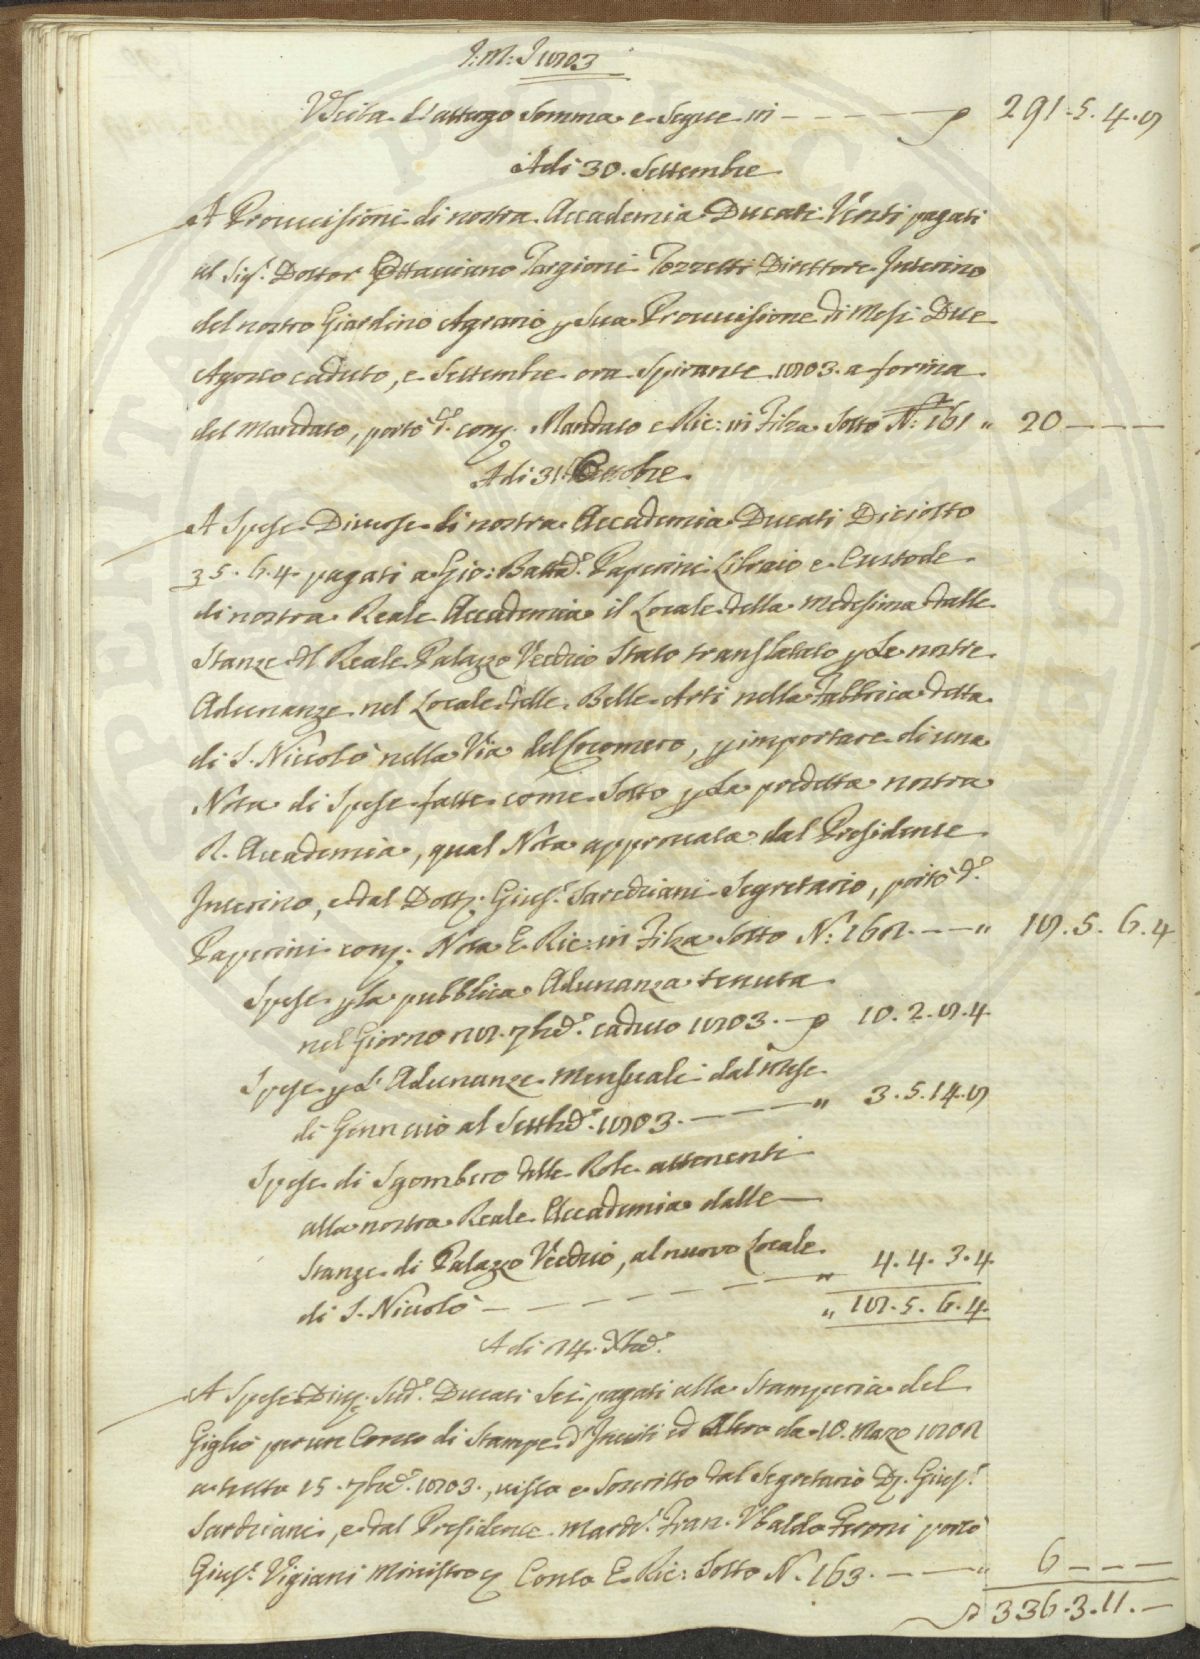 J: M: J 1803
Uscita di attergo Somma e Segue in — — — — — 291. 5. 4. 8
Adi 30. Settembre
A Provvisioni di nostra Accademia Ducati Venti pagati
al Sig.r Dottor Ottaviano Targioni Tozzetti Direttore Interino
del nostro Giardino Agrario p Sua Provvisione di Mesi Due
Agosto caduto, e Settembre ora Spirante 1803. a forma
del Mandato, portò d.o cont. Mandato e Ric: in Filza Sotto N.o 161 " 20 — — —
Adi 31. Ottobre
A Spese Diverse di nostra Accademia Ducati Diciotto
5. 6. 4 pagati a Gio: Batta. Paperini Libraio e Custode
di nostra Reale Accademia il Locale della medesima dalle
Stanze del Reale Palazzo Vecchio Stato translatato p Le nostre
Adunanze nel Locale delle Belle Arti nella Fabbrica detta
di S. Niccolò nella Via del Cocomero, p importare di una
Nota di Spese fatte come Sotto p La predetta nostra
R. Accademia, qual Nota approvata dal Presidente
Interino, e dal Dott. Gius.e Sarchiani Segretario, portò d.o
Paperini cont. Nota E Ric: in Filza Sotto N: 162. — — " 18. 5. 6. 4
Spese p la pubblica Adunanza tenuta
nel Giorno 28. 7bre. caduto 1803. — 10. 2. 8. 4.
Spese p L' Adunanze Mensuali dal Mese
di Gennaio al Settbre. 1803. — — — " 3. 5. 14. 8
Spese di Sgombero delle Robe attenenti
alla nostra Reale Accademia dalle
Stanze di Palazzo Vecchio, al nuovo Locale
di S. Niccolò — — — — — — — " 4. 4. 3. 4.
" 18. 5. 6. 4.
Adi 24. Xbre.
A Spese Div. Sud.e Ducati Sei pagati alla Stamperia del
Giglio per un Conto di Stampe d' Inviti ed Altro da 10. Marzo 1802
a tutto 15. 7bre. 1803., visto e Soscritto dal Segretario D. Gius.e
Sarchiani, e dal Presidente March.e Fran. Ubaldo Feroni portò
Gius.e Vigiani Ministro Conto E Ric: Sotto N. 163. — — — " 6 — — —
336. 3. 11. —